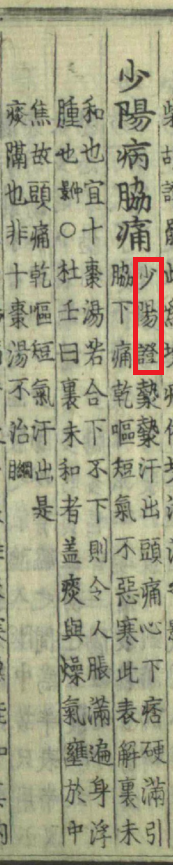 少陽病脇痛
少陽證漐漐汗出頭痛心下痞硬滿引
脇下痛乾嘔短氣不惡寒此表解裏未
和也宜十棗湯若合下不下則令人脹滿遍身浮
腫也 ○杜壬曰裏未和者盖痰與燥氣壅於中
焦故頭痛乾嘔短氣汗出是
痰膈也非十棗湯不治